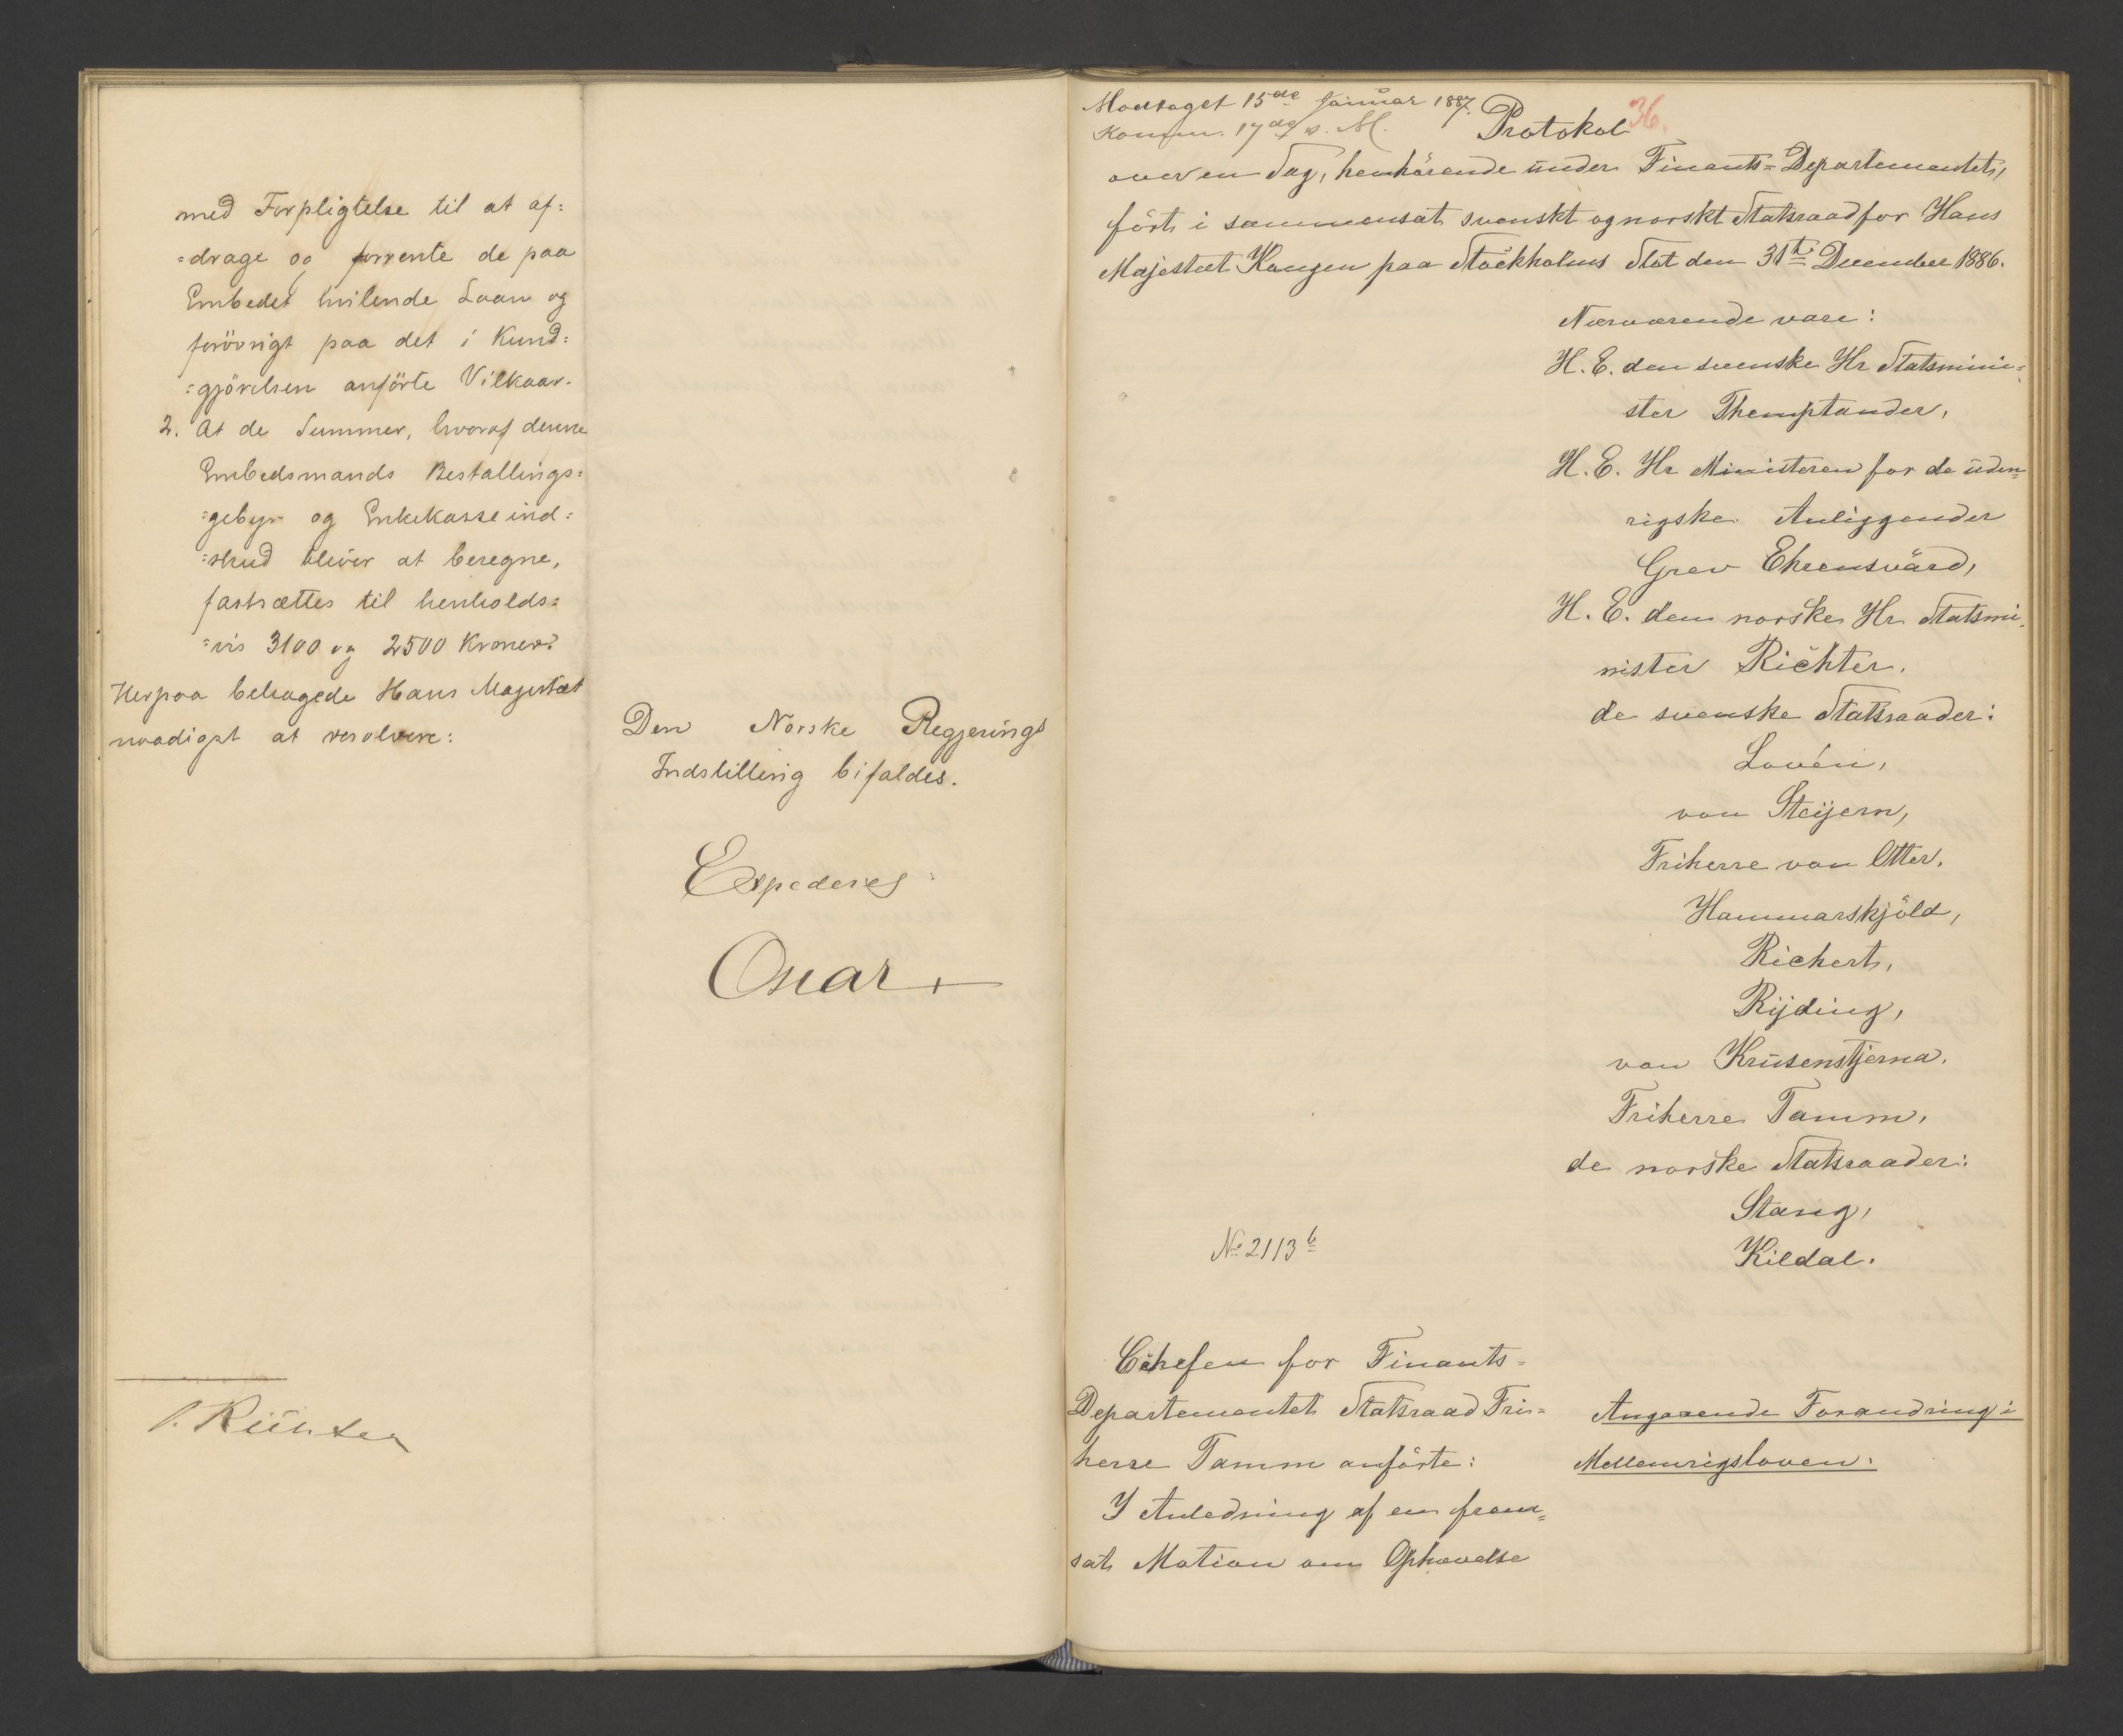 med Forpligtelse til at af=
=drage og forrente de paa
Embedet hvilende Laan og
forövrigt paa det i Kund=
=gjörelsen anförte Vilkaar.
2. At de Summer, hvoraf denne
Embedsmands Bestallings=
=gebyr og Enkekasseind=
=skud bliver at beregne,
fastsættes til henholds=
=vis 3100 og 2500 Kroner?
Herpaa behagede Hans Majestæt
naadigst at resolvere:
Den Norske Regjerings
Indstilling bifaldes.
Expederes:
Oscar
O. Richter
Modtaget 15de Januar 1887.
Komm. 17de s. M.
Protokol 36.
over en Sag, henhörende under Finants=Departementet,
fört i sammensat svenskt og norskt Statsraad for Hans
Majestæt Kongen paa Stockholms Slot den 31te December 1886.
Nærværende vare:
H. E. den svenske Hr Statsmini=
ster Themptander,
H. E. Hr Ministeren for de uden=
rigske Anliggender
Grev Ehrensvärd,
H. E. den norske Hr Statsmi=
nister Richter.
de svenske Statsraader:
Lovén,
von Steijern,
Friherre von Otter,
Hammarskjöld,
Richert,
Rijding,
von Krusenstjerna.
Friherre Tamm,
de norske Statsraader:
Stang,
Kildal.
No 2113 b
Chefen for Finants=
Departementet Statsraad Fri=
herre Tamm anförte:
I Anledning af en frem=
sat Motion om Ophævelse
Angaaende Forandring i
Mellemrigsloven.